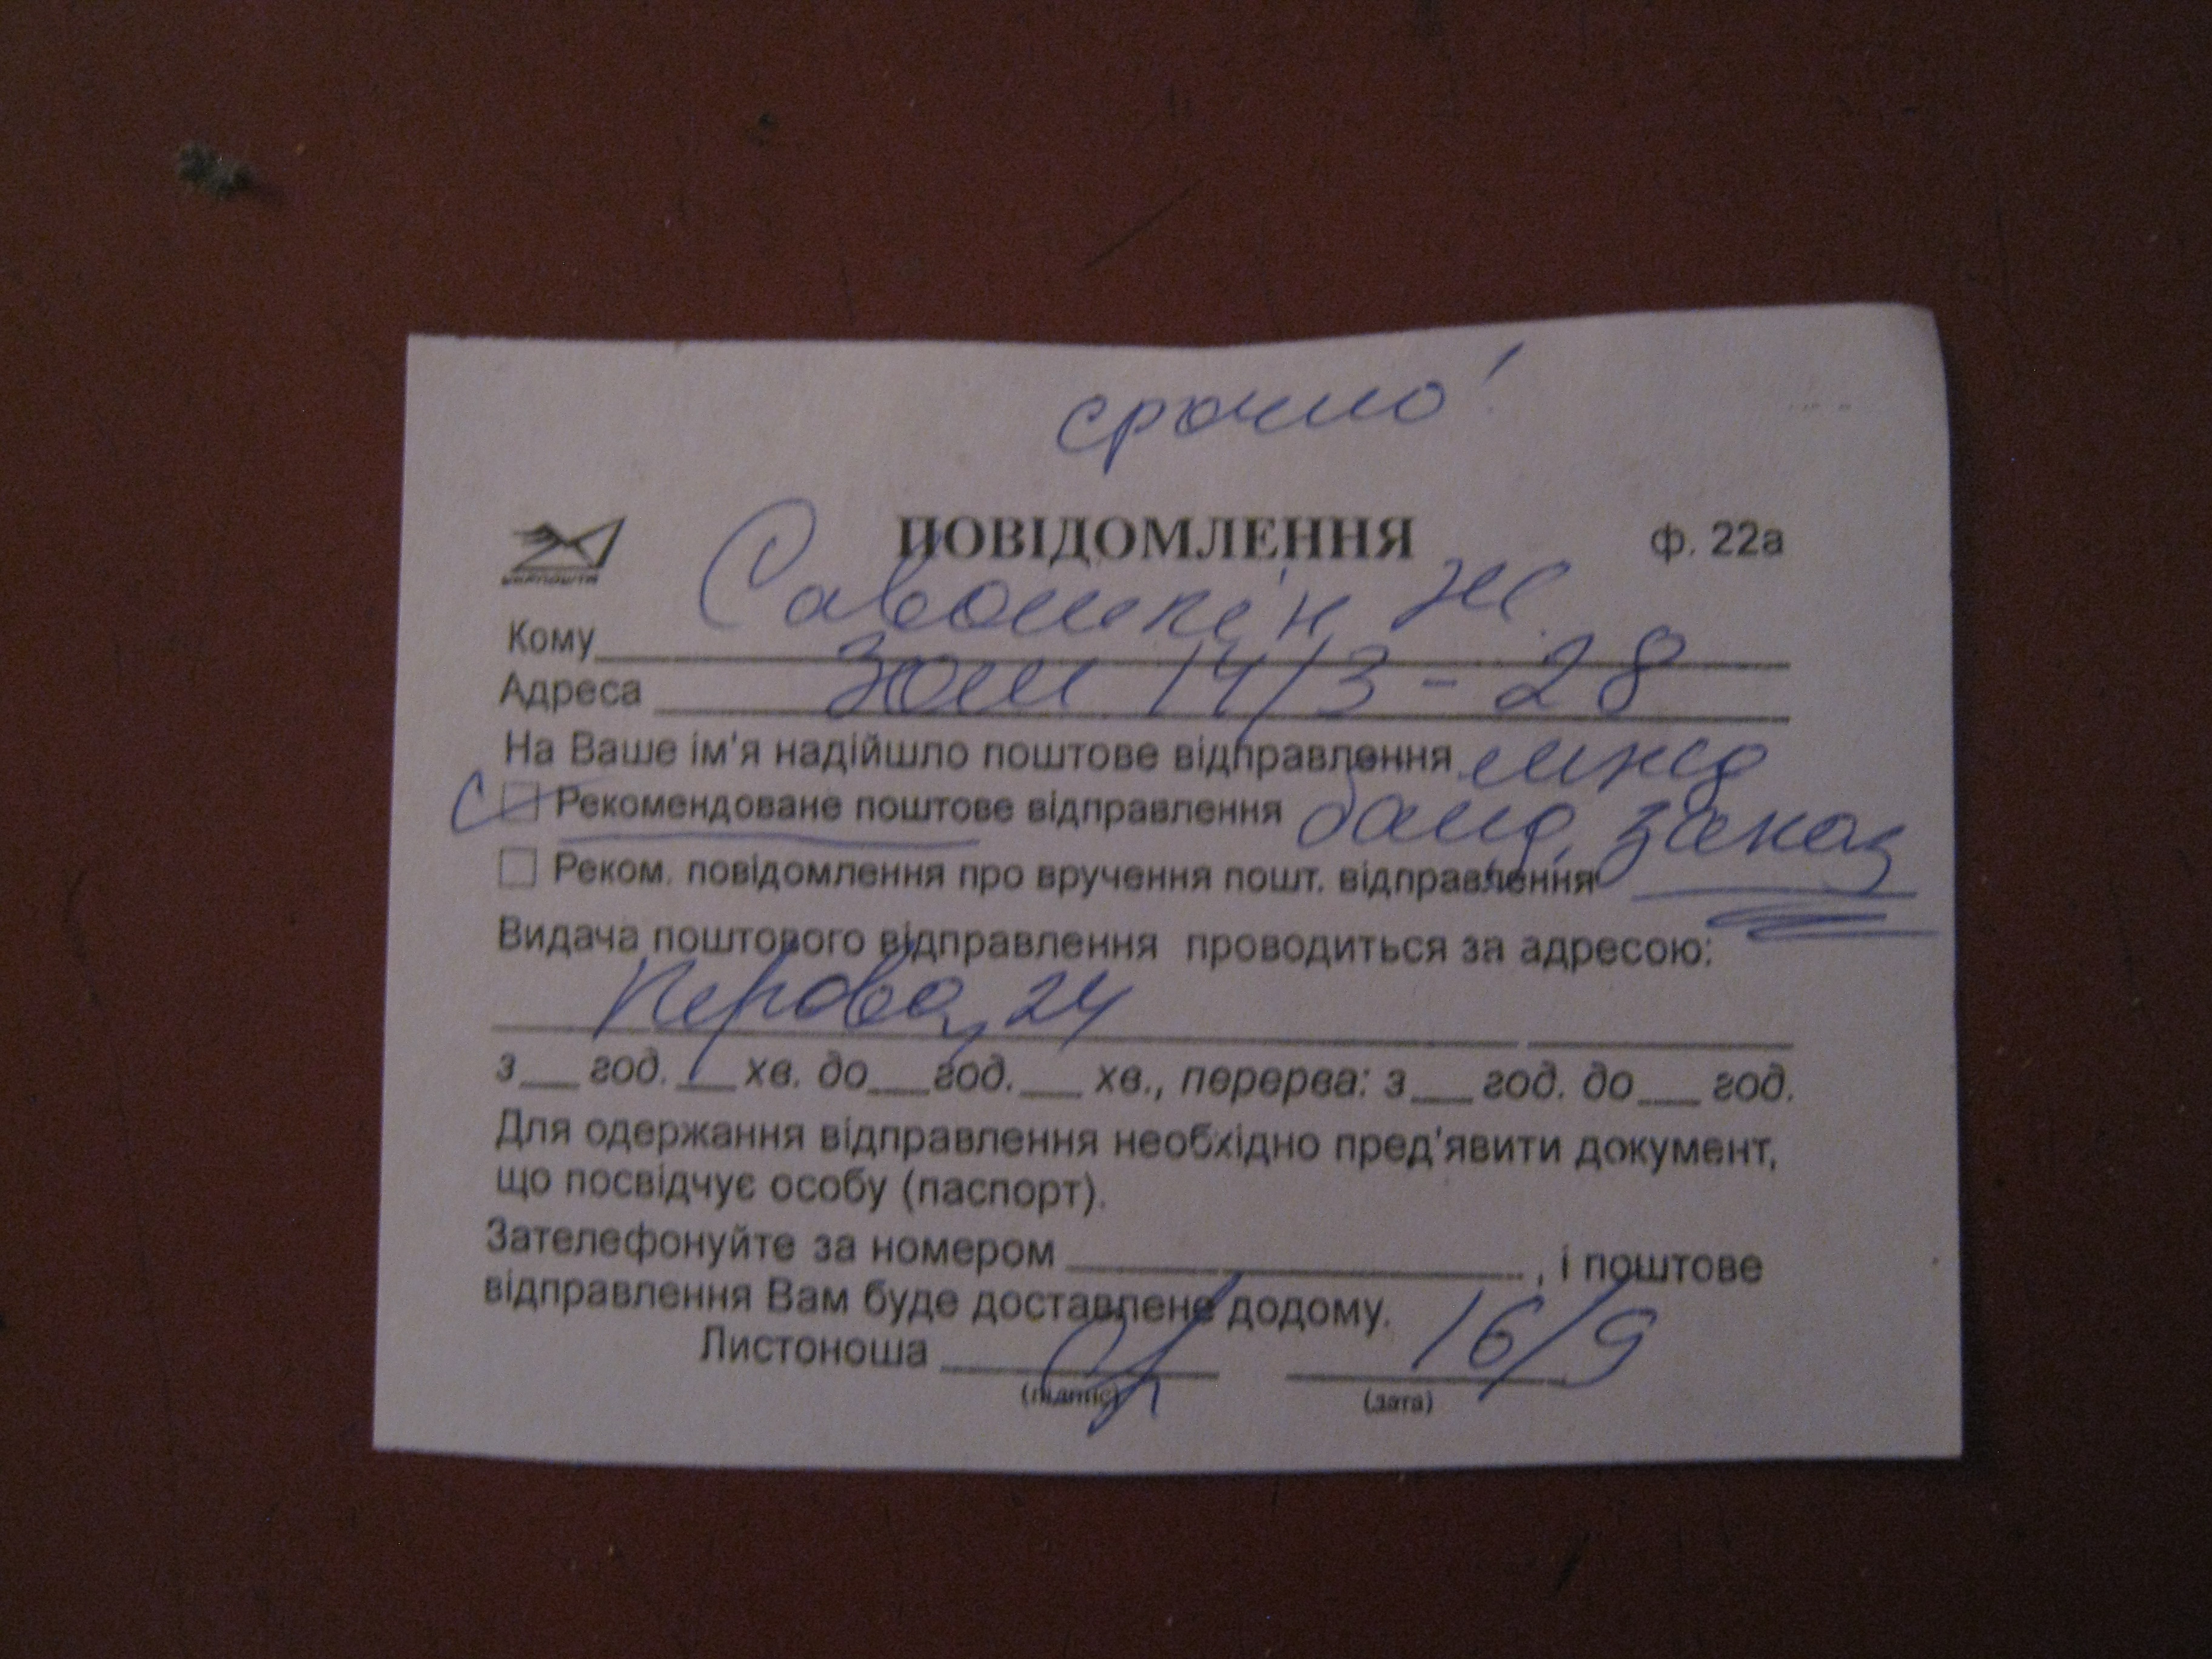 срочно!
ПОВІДОМЛЕННЯ ф. 22а
УКРПОШТА
Кому Савошкін Ж.
Адреса Зот 14/3 - 28
На Ваше ім'я надійшло поштове відправлення
Рекомендоване поштове відправлення банд. заказ
Реком. повідомлення про вручення пошт. відправлення
Видача поштового відправлення проводиться за адресою:
Перова, 24
з__ год. __ хв. до__год. __ хв., перерва: з__ год. до__ год.
Для одержання відправлення необхідно пред'явити документ,
що посвідчує особу (паспорт).
Зателефонуйте за номером ____, і поштове
відправлення Вам буде доставлене додому.
Листоноша 16/9
(підпис) (дата)